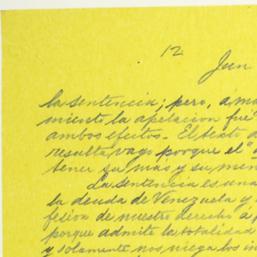 12
Jun
la sentencia; pero, a mo
miento la apelación fué
ambos efectos. El texto d
resulta vago porque el
tener su más y su men
La sentencia es una
la deuda de Venezuela y
fesión de nuestro derecho á
porque admite la totalidad
y solamente nos niega los in